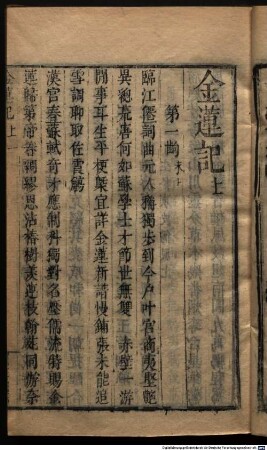 金蓮記上
第一齣 末上
臨江僊詞曲元人稱獨步到今户叶宮商夷堅艷
異總荒唐何如蘇學士才節世無雙 赤壁一游
閒事耳生平梗槩宜詳金蓮新譜慢鋪張未能追
雪調聊取佐霞觴
漢宮春蘇軾奇才應制科獨對名壓儒流時賜金
蓮歸第帝眷綢繆恩沾椿樹羨連枝翰苑同游奈
金蓮記 上 一